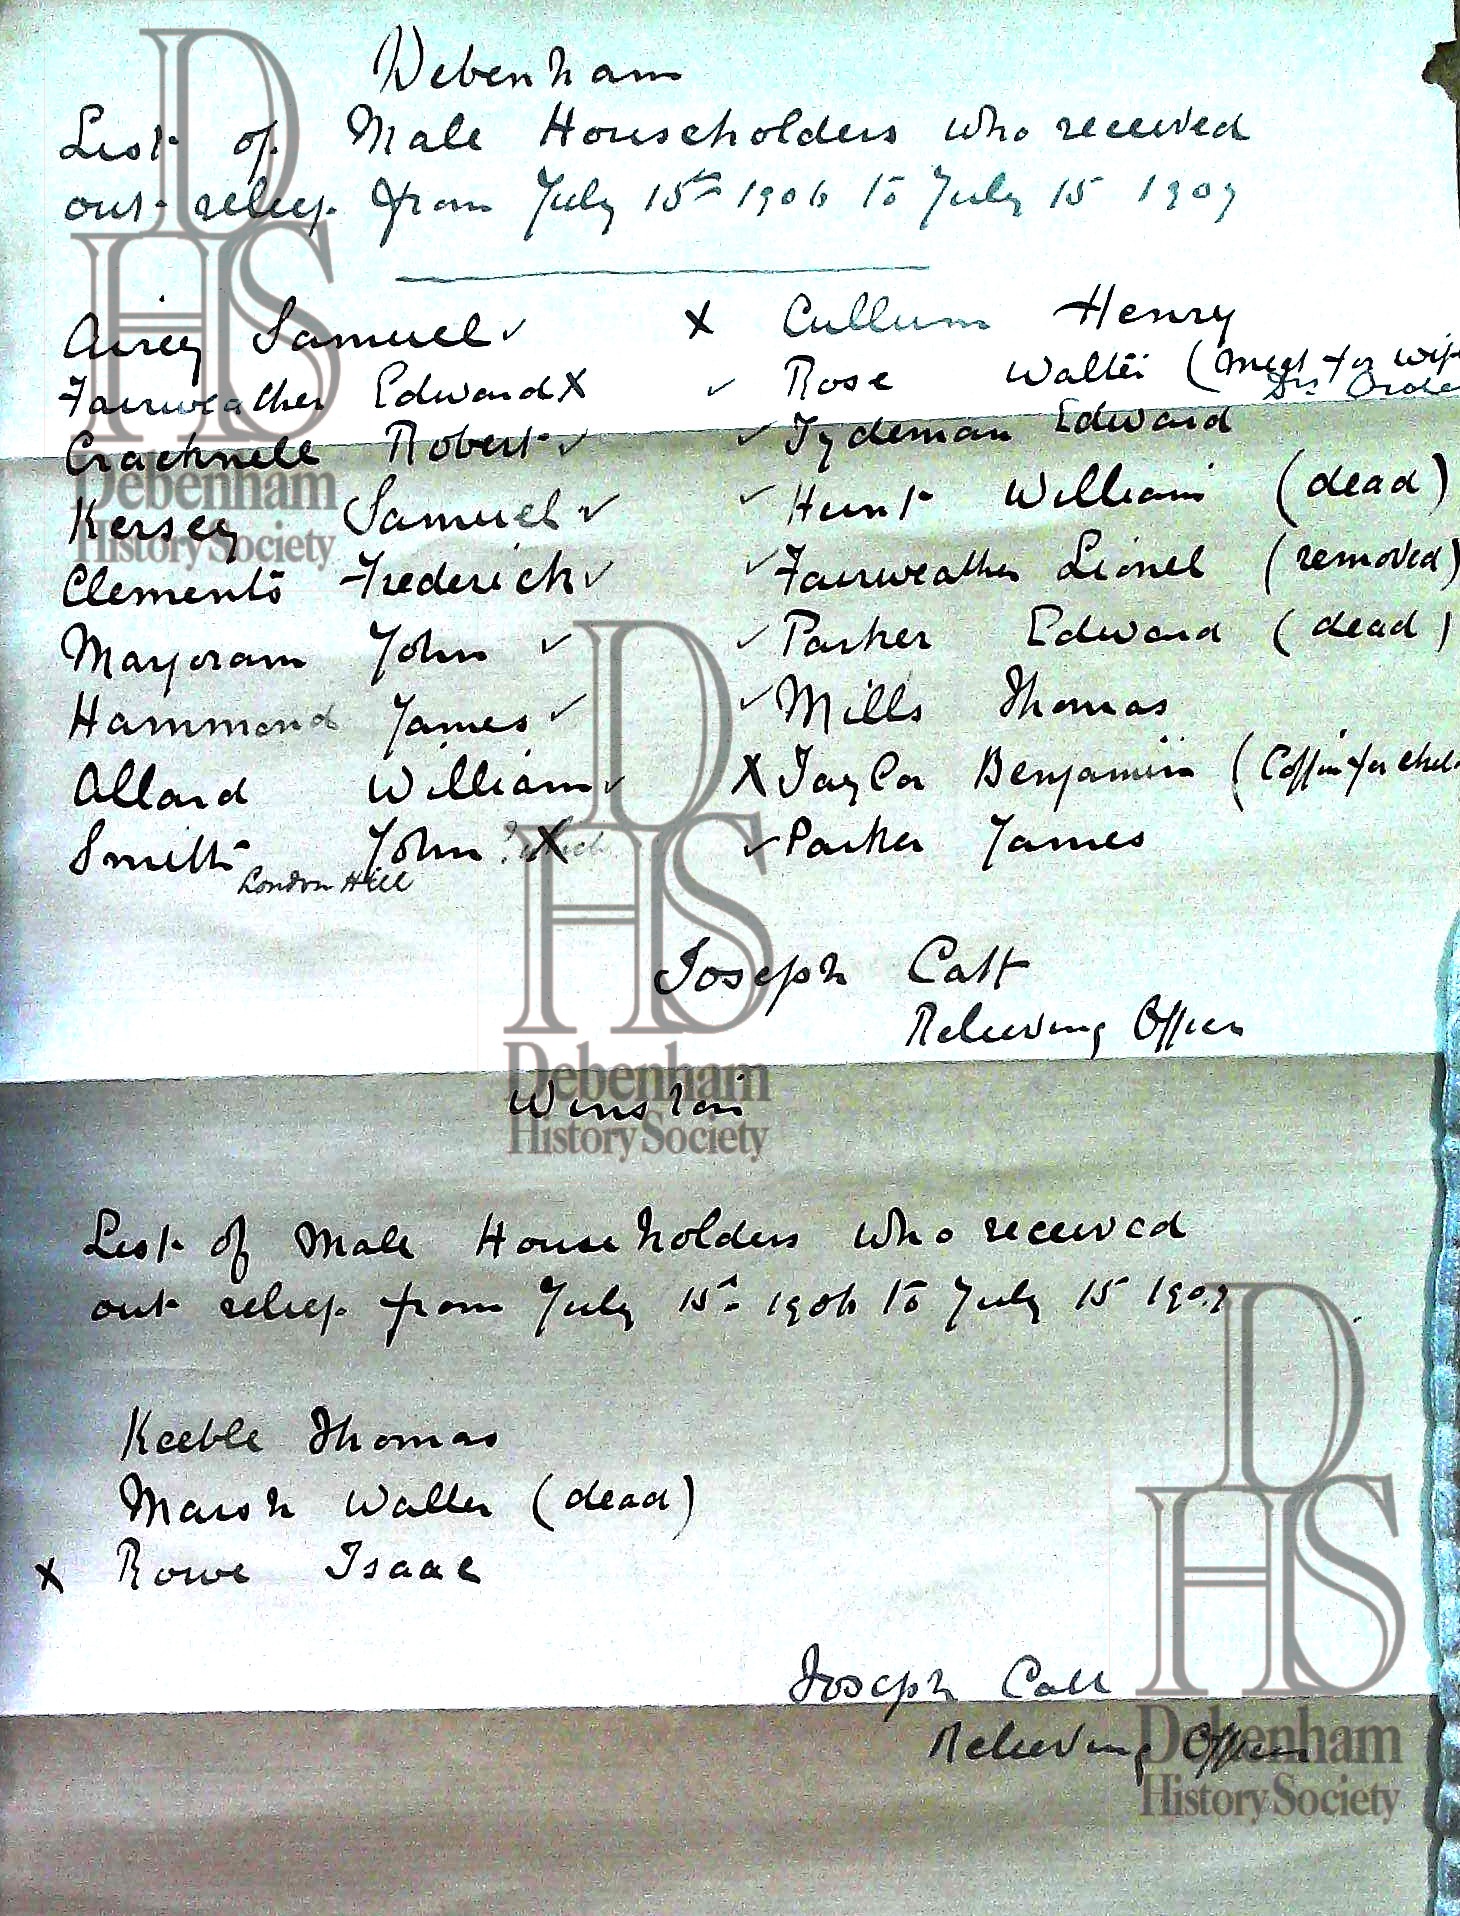 Debenham
List of Male Householders who received
out relief from July 15th 1906 to July 15 1907
Airey Samuel ✓
Fairweather Edward X
Cracknell Robert ✓
Kersey Samuel ✓
Clements Frederick ✓
Marjoram John ✓
Hammond James ✓
Allard William ✓
Smith John X
London Hill
X Cullum Henry
✓ Rose Walter (Meat for Wife
Drs Order
✓ Tydeman Edward
✓ Hunt William (dead)
✓ Fairweather Lionel (removed)
✓ Parker Edward (dead)
✓ Mills Thomas
X Taylor Benjamin (Coffin for child
✓ Parker James
Joseph Catt
Relieving Officer
Winston
List of Male Householders who received
out relief from July 15th 1906 to July 15 1907
Keeble Thomas
Marsh Walter (dead)
X Rowe Isaac
Joseph Catt
Relieving Officer
DHS
Debenham
History Society
DHS
Debenham
History Society
DHS
Debenham
History Society